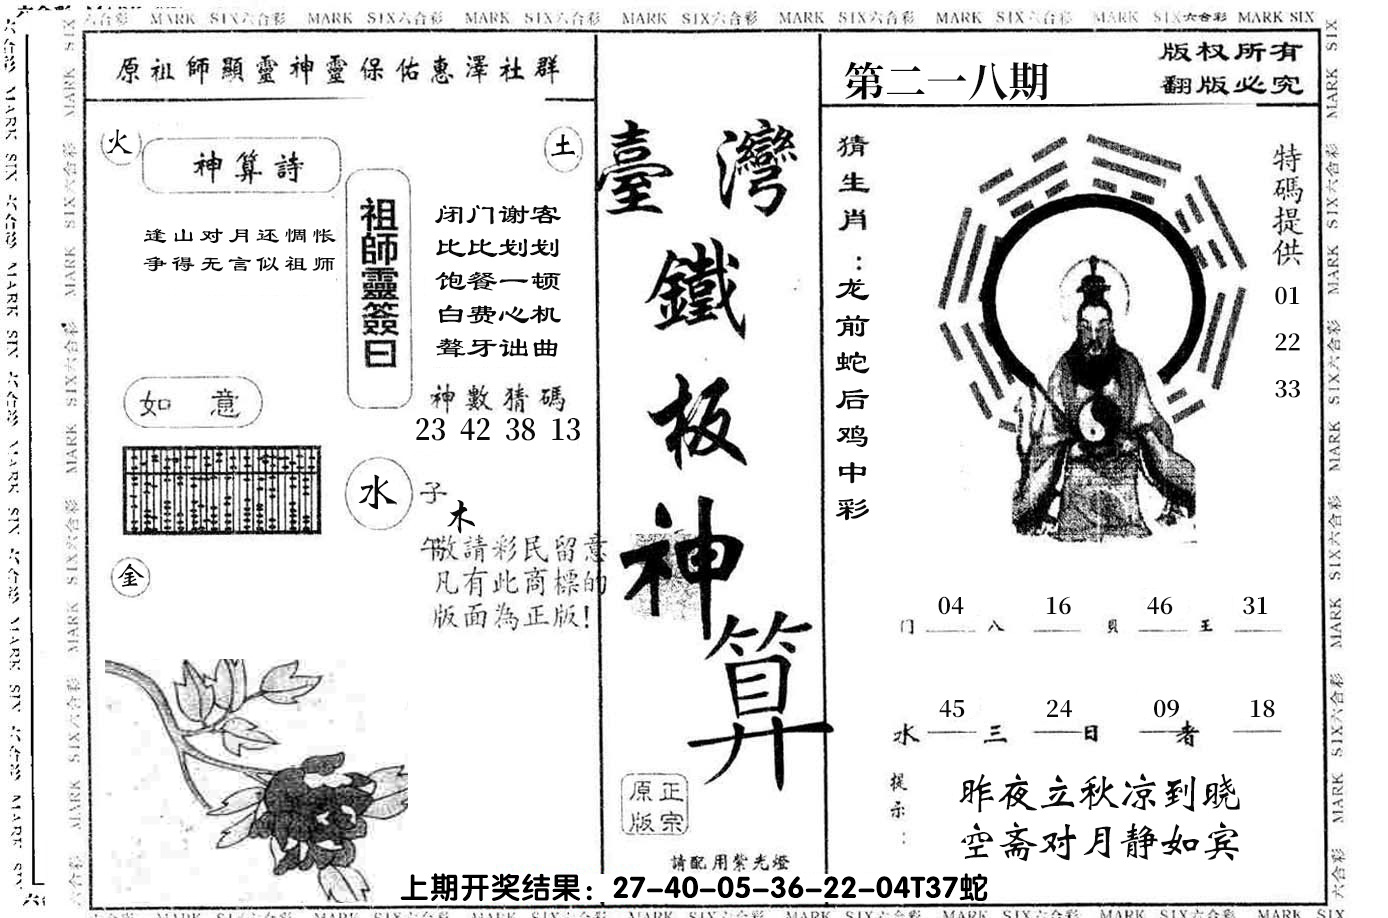 MARK SIX六合彩 MARK SIX六合彩 MARK SIX六合彩 MARK SIX六合彩 MARK SIX六合彩 MARK SIX六合彩 MARK SIX六合彩 MARK SIX
原祖師顯靈神靈保佑惠澤社群
火
神算詩
土
逢山对月还惆怅
争得无言似祖师
祖師靈簽曰
闭门谢客
比比划划
饱餐一顿
白费心机
聱牙诎曲
如意
神數猜碼
23 42 38 13
水
子
木
午
敬請彩民留意
凡有此商標的
版面為正版!
金
臺灣
鐵
板
神
算
正宗
原版
請配用紫光燈
第二一八期
版权所有
翻版必究
猜生肖：龙前蛇后鸡中彩
特碼提供
01
22
33
04 16 46 31
门 八 貝 王
45 24 09 18
水 三 日 者
提示：
昨夜立秋凉到晓
空斋对月静如宾
上期开奖结果：27-40-05-36-22-04T37蛇